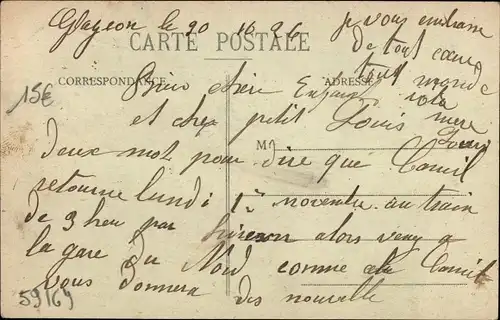 Glageon le 20 10 26
je vous embrasse
de tout cœur
tout monde
CARTE POSTALE
CORRESPONDANCE
ADRESSE
15€
Bien chère Enfant
et cher ptit Louis
votre mere
M
deux mot pour dire que Camil
retourne lundi 1er novembre au train
de 3 heu par alors venz a
la gare du Nord comme cela Camil
vous donnera des nouvelle
59169